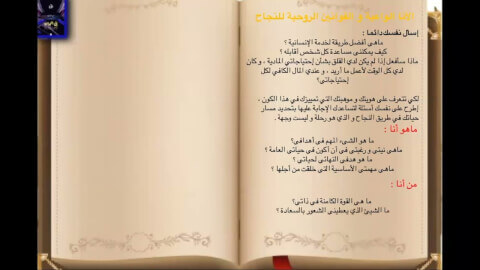 الأنا الواعية و القوانين الروحية للنجاح
إسأل نفسك دائما :
ماهى أفضل طريقة لخدمة الإنسانية ؟
كيف يمكننى مساعدة كل شخص أقابله ؟
ماذا سأفعل إذا لم يكن لدى القلق بشأن إحتياجاتى المادية ، و كان
لدى كل الوقت لأعمل ما أريد ، و عندي المال الكافي لكل
إحتياجاتى؟
لكي نتعرف على هويتك و موهبتك التي تميزك في هذا الكون ،
إطرح على نفسك أسئلة لتساعدك الإجابة عليها بتحديد مسار
حياتك في طريق النجاح و الذي هو رحلة و ليست وجهة .
ماهو أنا :
ما هو الشيء المهم في أهدافى؟
ماهى نيتى و رغبتى في أن أكون في حياتى العامة ؟
ما هو هدفى النهائي لحياتى ؟
ماهى مهمتى الأساسية التى خلقت من أجلها ؟
من أنا :
ما هى القوة الكامنة في ذاتى؟
ما الشيئ الذي يعطينى الشعور بالسعادة ؟